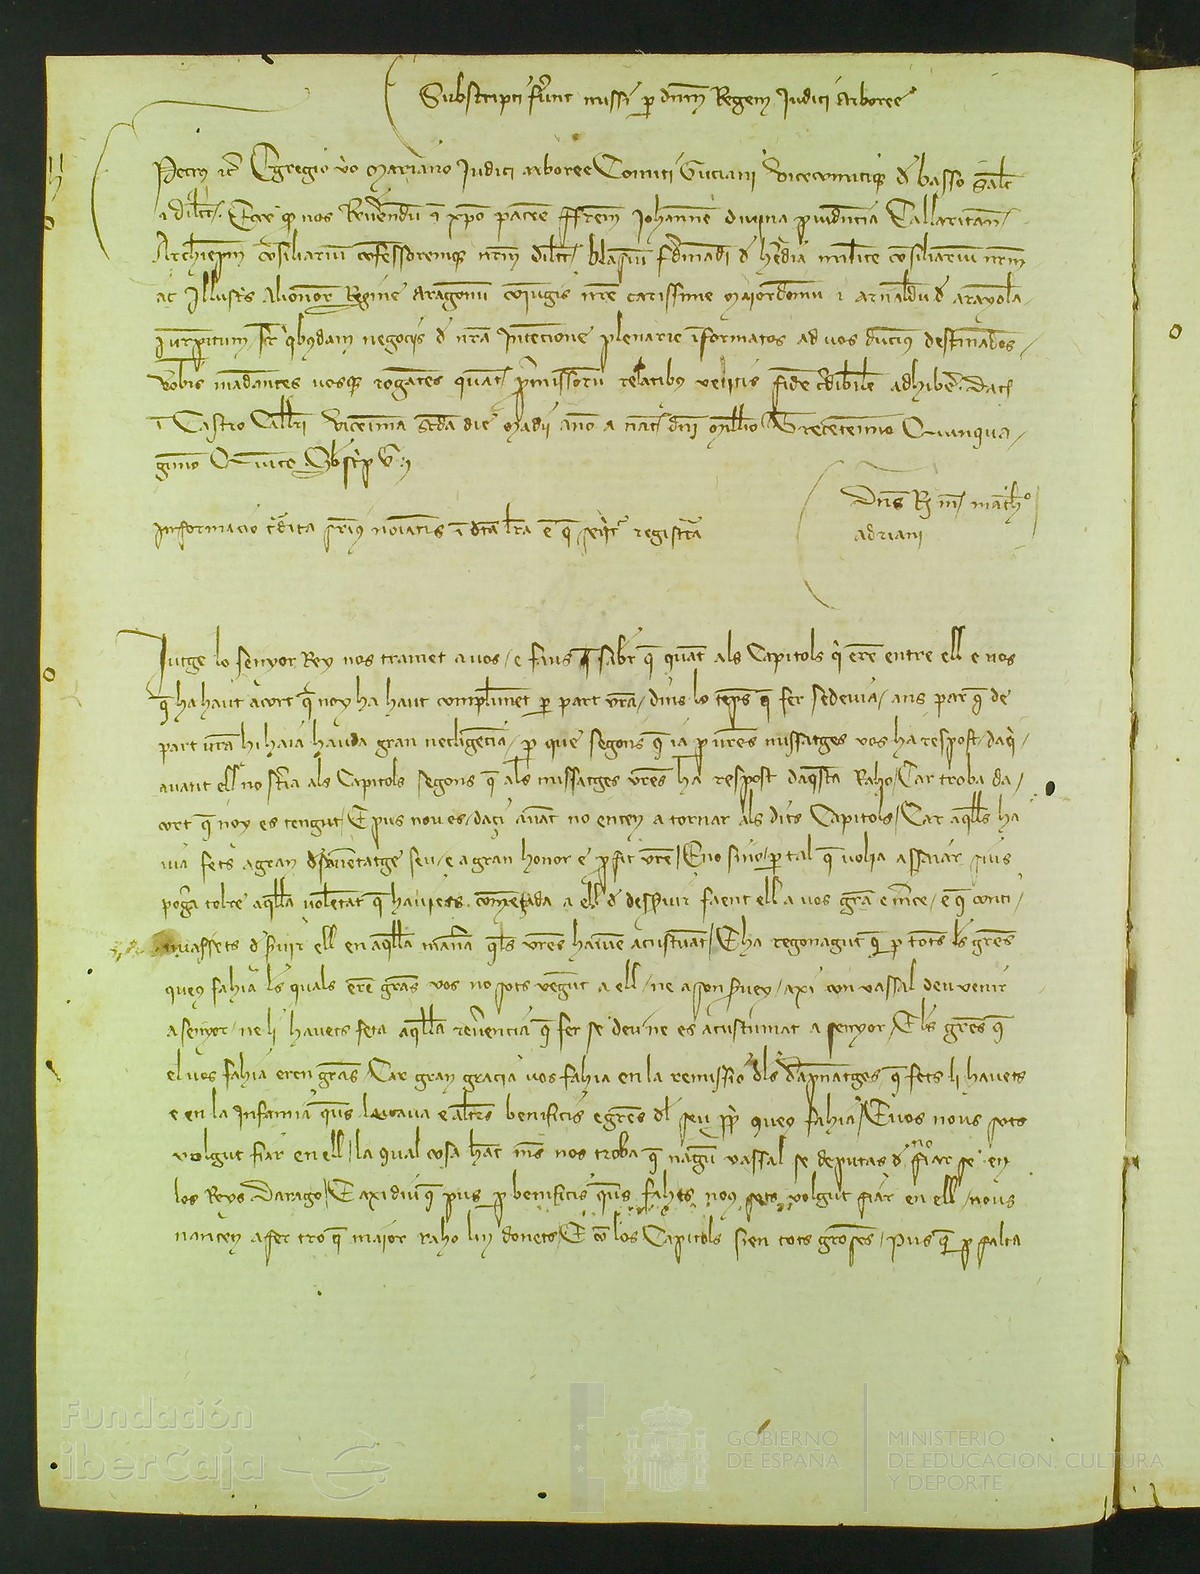 Subscripti fuerunt missi per dominum Regem Judici Arboree
Petrus etc Egregio viro Mariano Judici Arboree Comiti Guciani vicecomitique de basso salutem
et dileccionem. Ecce quod nos Reverendum in christo patrem ffratrem Johannem divina providencia Callaritanum
Archiepiscopum consiliarium confessoremque nostrum dilectum blasium fernandi de heredia militem consiliarium nostrum
ac Illustris Alionoris Regine Aragonum coniugis nostre carissime maiordomum et arnaldum de
Jurisperitum super quibusdam negociis de nostra Intencione plenarie informatos ad vos ducimus destinandos
vobis mandantes vosque rogantes quatenus premissorum relatibus velitis fidem credibilem adhibere. Datum
in Castro Callari vicesima secunda die Madii anno a nativitate domini Millesimo Trecentesimo Quinqua
gesimo Quinto.
Dominus Rex matheo
adriani
Informacio tradita nominatis in dicta littera est que sequitur registrata
Jutge lo senyor Rey nos tramet a vos e fa us saber que quant als Capitols qui eren entre ell e vos
que ha haut acort que noy ha haut compliment per part vostra dins lo temps que fer se devia ans par que de
part vostra hi haia hauda gran necligencia per que segons que ja per vostres missatges vos ha respost daqui
avant ell no staria als Capitols segons que als missatges vostres ha respost daquesta Raho Car troba da
cort que noy es tengut E pus nou es daci avant no enten a tornar als dits Capitols Car aquells ha
via fets a gran desaventatge seu e a gran honor e profit vostre E no sino per tal que volia assaiar sius
pogra tolre aquella volentat que haviets començada a ell de desservir faent ell a vos gracia e merce e que conti
nuassets de servir ell en aquella manera quels vostres havien acustumat E ha regonagut que per tots les gracies
queus fahia les quals eren grans vos no sots vengut a ell ne a son servey axi con vassal deu venir
a senyor ne li havets feta aquella reverencia que fer se deu ne es acustumat a senyor E les gracies que
el vos fahia eren grans Car gran gracia vos fahia en la remissio dels dapnatges que fets li havets
e en la Infamia queus levava e altres benificis e gracies del seu propi queus fahia E vos nous sots
volgut fiar en ell la qual cosa hac mes nos troba que nagun vassal se deputas de no fiar se en
los Reys Darago E axi diu que pus per benificis queus fahes nous sots volgut fiar en ell nous
nanten a fer tro que maior raho lin donets E com los Capitols sien tots grosses pus que per falta
GOBIERNO
DE ESPAÑA
MINISTERIO
DE EDUCACIÓN, CULTURA
Y DEPORTE
Fundación
iberCaja